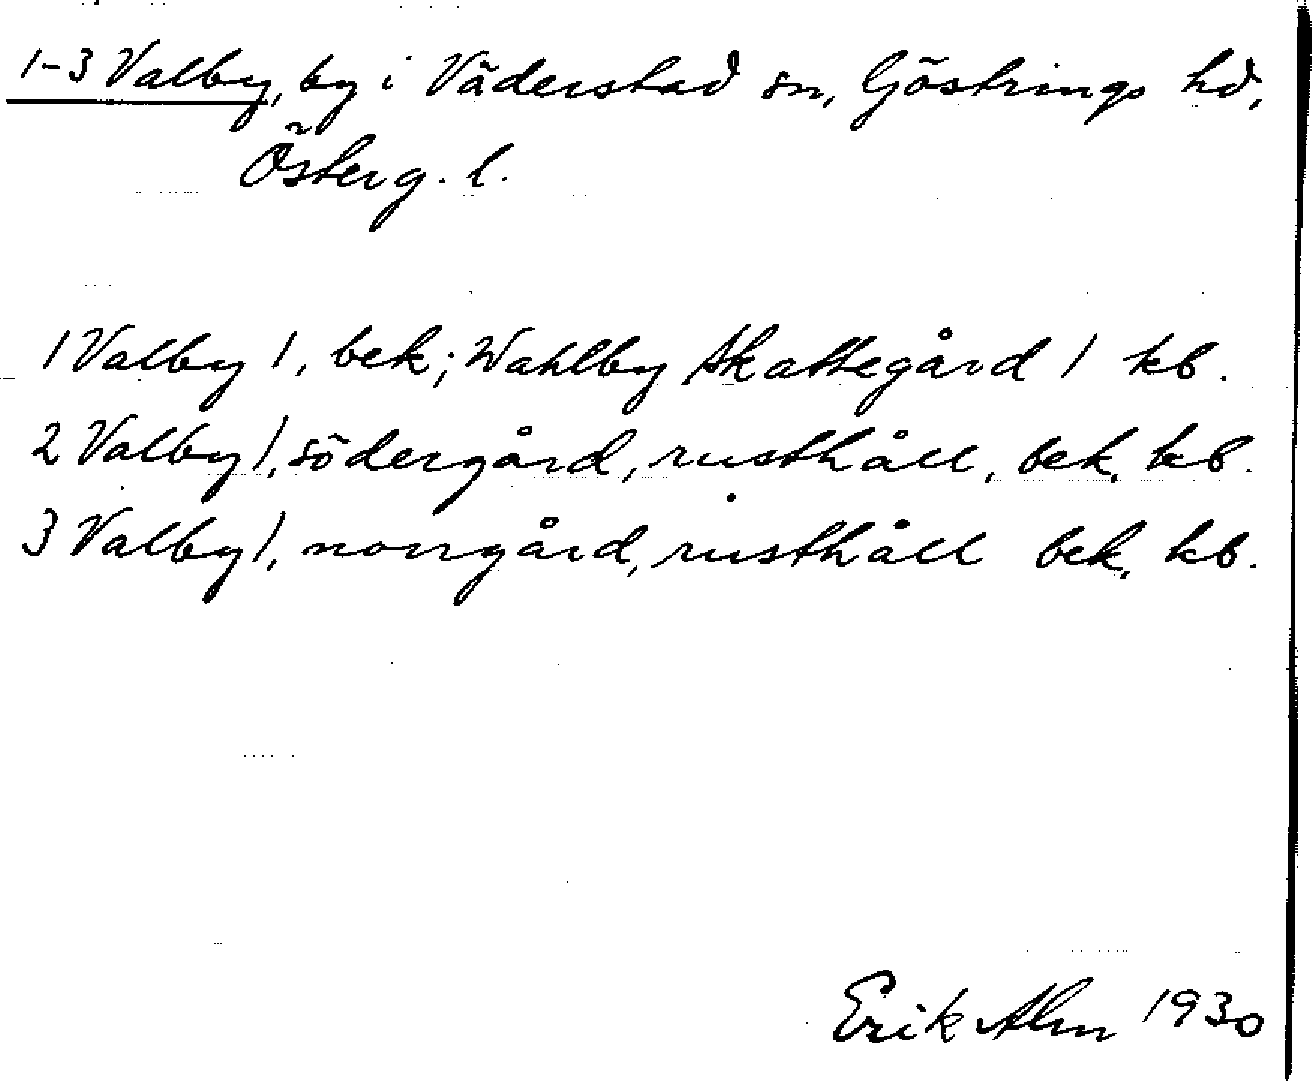 1-3 Valby, by i Väderstad sn, Göstrings hd,
Österg. l.
1 Valby 1, bek; Wahlby Skattegård 1 kb.
2 Valby 1, södergård, rusthåll, bek, kb.
3 Valby 1, norrgård, rusthåll bek, kb.
Erik Alm 1930